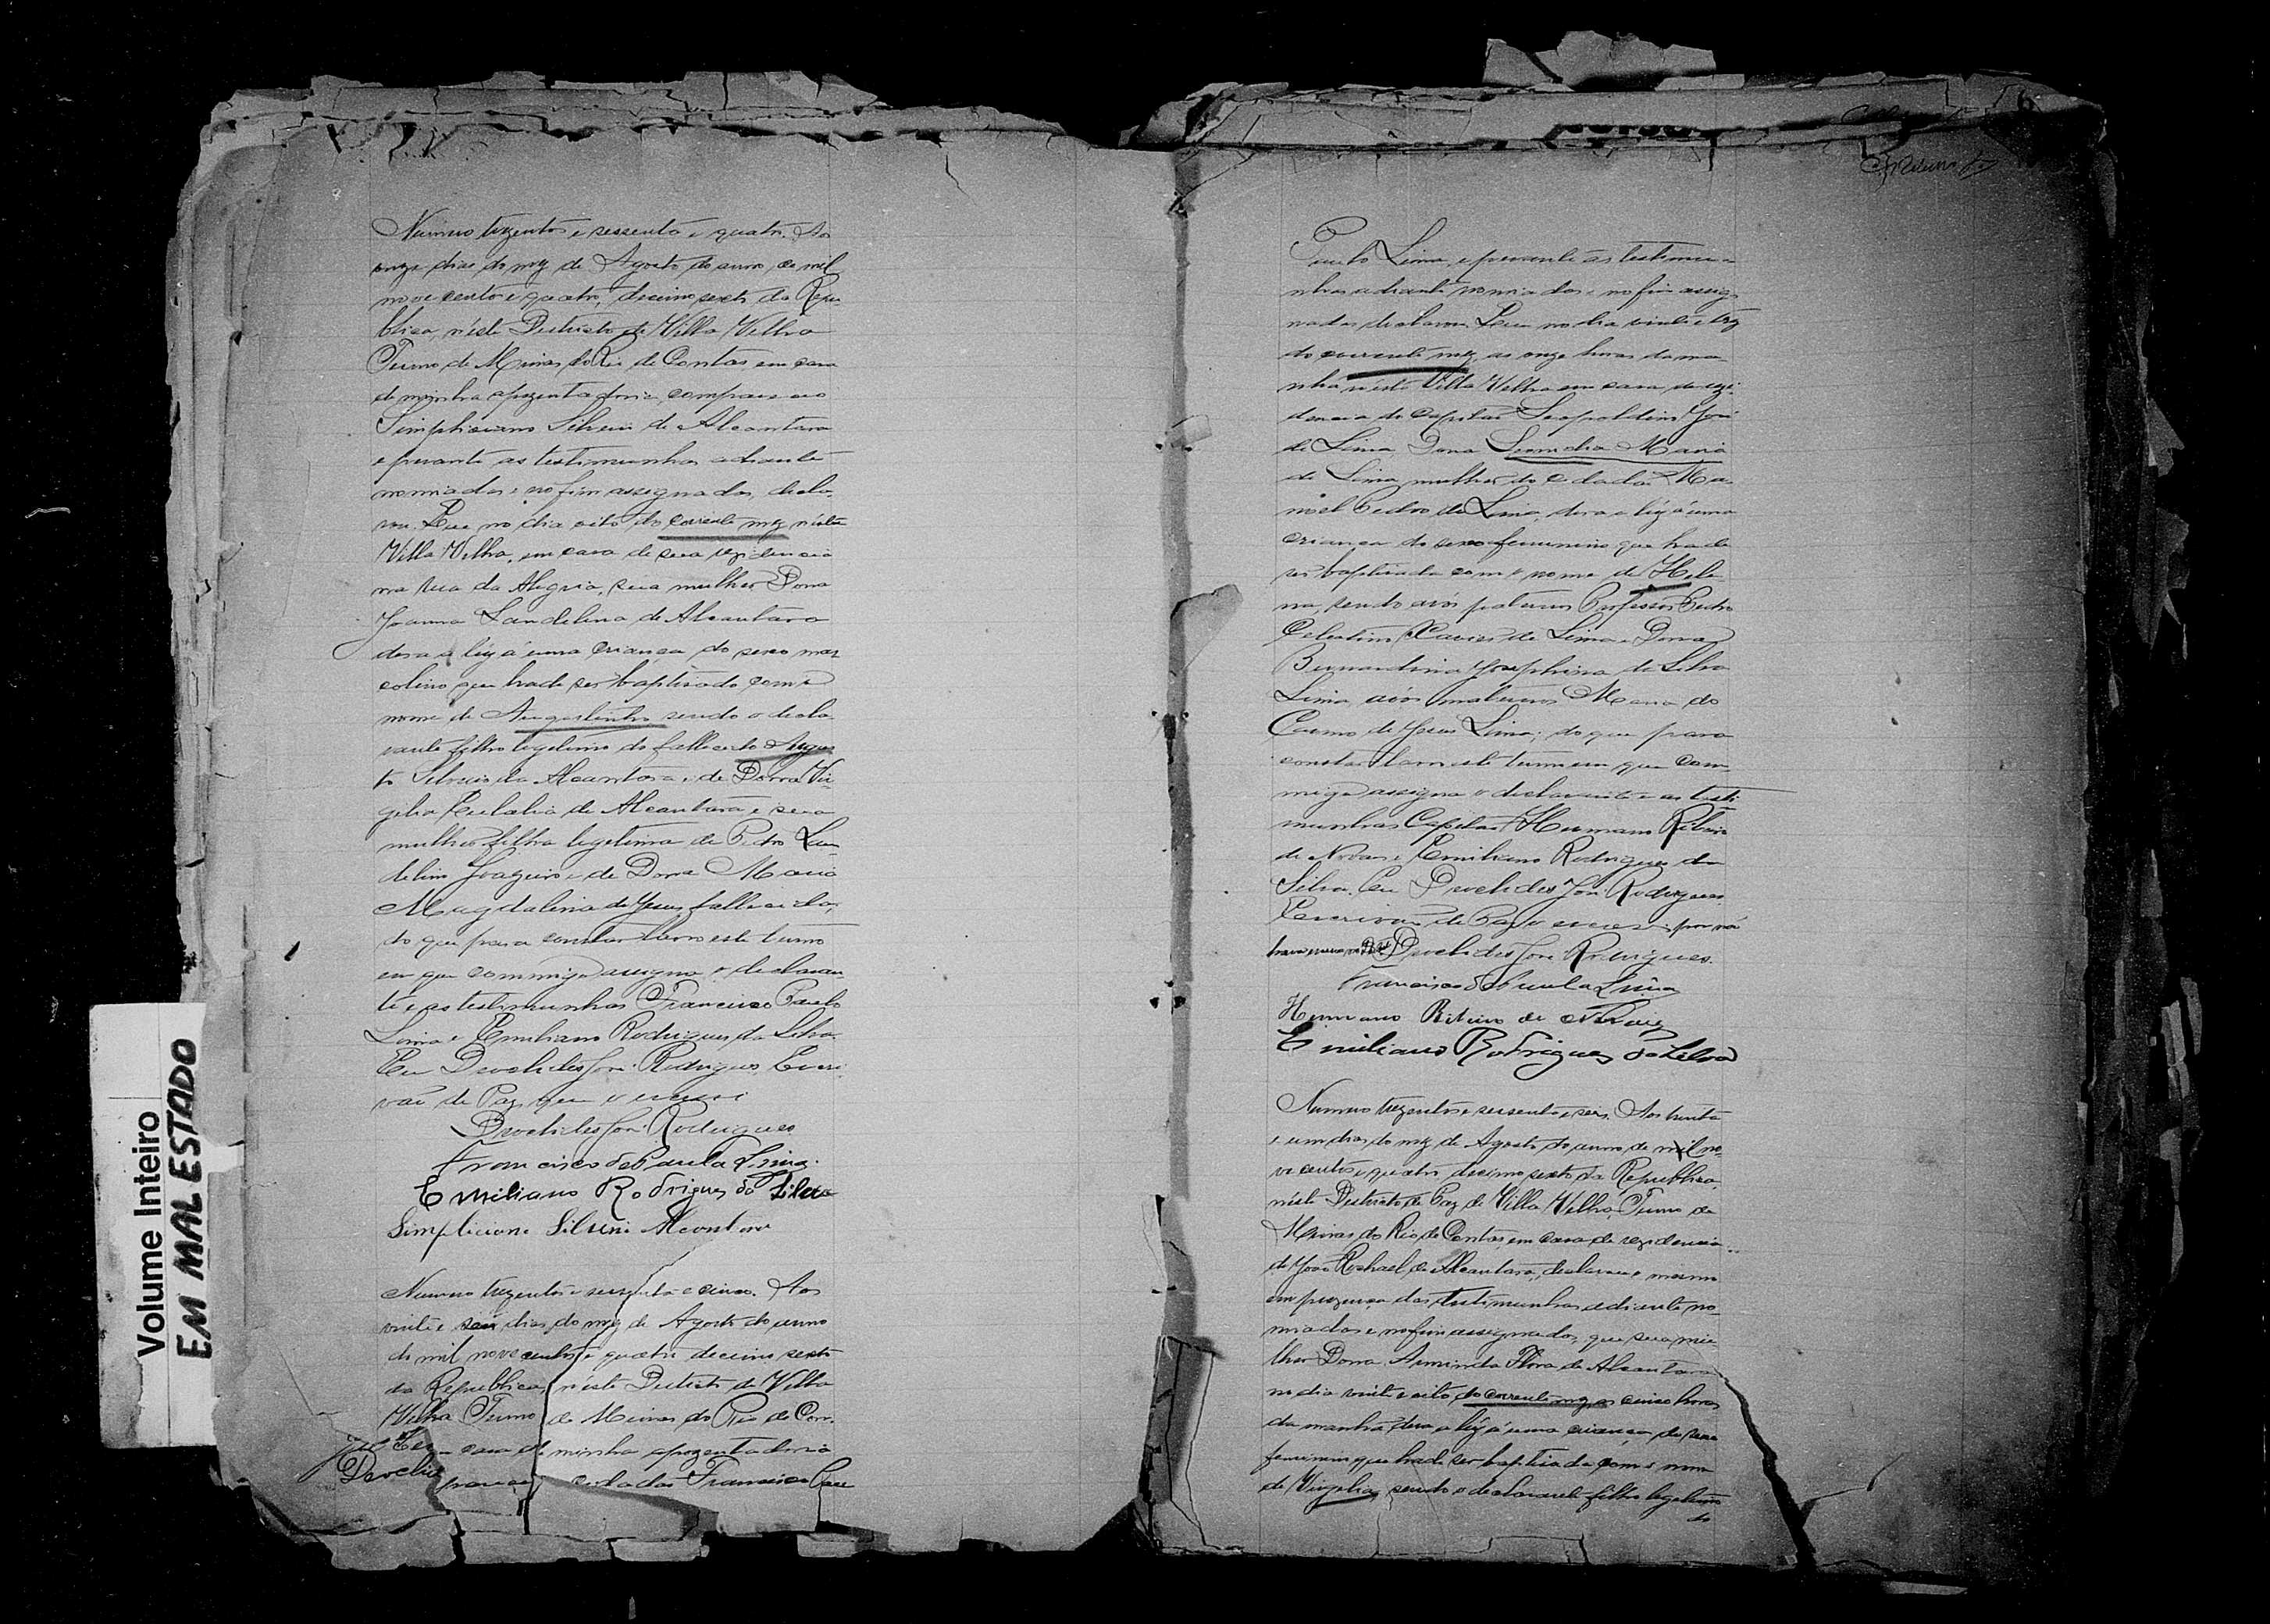 Numero trezentos e sessenta e quatro. Aos
onze dias do mez de Agosto do anno de mil
nove centos e quatro, decimo sexto da Repu
blica, n'este Districto de Villa Velha
Termo de Minas do Rio de Contas em casa
de minha apozentadoria, compareceo
Simpliciano Silveri de Alcantara
e perante as testimunhas adiante
nomiadas e no fim assignadas, decla
rou. Que no dia oito do corrente mez n'esta
Villa Velha, em casa de sua rezidencia
na rua da Alegria, sua mulher Dona
Joanna Landelina de Alcantara
dera a luz á uma criança do sexo mas
colino que hade ser baptisado com o
nome de Augustinho sendo o decla
rante filho legitimo do fallecido Augus
to Silveri de Alcantara e de Dona Vir
gilia Eulalia de Alcantara e sua
mulher filha legitima de Pedro Lan
delino Joazeiro e de Dona Maria
Magdalena de Jesus, fallecida,
do que para constar lavro este termo
em que commigo assigna o declaran
te e as testimunhas Francisco Paulo
Lima e Emiliano Rodrigues da Silva.
Eu Deoclides José Rodrigues Escri
vão de Paz que o escrevi
Deoclides José Rodrigues
Francisco de Paula Lima.
Emiliano Rodrigues da Silva
Simpliciano Silveri Alcantara
Numero trezentos e sessenta e cinco. Aos
vinte e seis dias do mez de Agosto do anno
de mil nove centos e quatro decimo sexto
da Republica, n'este Districto de Villa
Velha Termo de Minas do Rio de Con
casa de minha apozentadoria
cidadão Francisco Pau
Deoclid
Paulo Lima, e perante as testimu
nhas adiante nomiadas e no fim assig
nadas declarou. Que no dia vinte e trez
do corrente mez, as onze horas da ma
nhã n'esta Villa Velha em casa de rezi
dencia do Capitão Leopoldino José
de Lima, Dona Leandra Maria
de Lima mulher do cidadão Ma
noel Pedro de Lima, dera a luz á uma
criança do sexo femenino que hade
ser baptisada com o nome de Hele
na, sendo avós paternos Professor Pedro
Celestino Xavier de Lima e Dona
Bernardina Josephina da Silva
Lima avós maternos Maria do
Carmo de Jesus Lima; do que para
constar lavro este termo em que com
migo assigna o declarante e as testi
munhas Capitão Hermano Ribeiro
de Novaes e Emiliano Rodrigues da
Silva. Eu Deoclides José Rodrigues
Escrivão de Paz o escrevi
Deoclides José Rodrigues.
Francisco de Paula Lima
Hermano Ribeiro de Novaes
Emiliano Rodrigues da Silva
Numero trezentos e sessenta e seis. Aos trinta
e um dias do mez de Agosto do anno de mil no
ve centos e quatro decimo sexto da Republica,
n'este Districto de Paz de Villa Velha, Termo de
Minas do Rio de Contas, em casa de rezidencia
de José Raphael de Alcantara, declarou o mesmo
em prezença das testimunhas adiante no
miadas e no fim assignadas, que sua mu
lher Dona Arminda Flora de Alcantara
no dia vinte e oito do corrente mez as cinco horas
da manhã dera a luz á uma criança do sexo
femenino que hade ser baptisada com o nome
de Virgilia, sendo o declarante filho legitimo
do
Volume Inteiro
EM MAL ESTADO